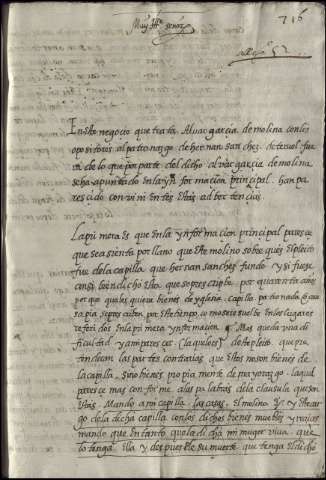 Muy Ill.e señor
716
En este negocio que trata Aluar garcia de molina con los
opositores al patronazgo de hernan sanchez de teruel fue
ra de lo que por parte del dicho aluar garcia de molina
se ha apuntado en la ynformacion principal. han pa
rescido convinientes estas advertencias.
La primera es que en la ynformacion principal paresce
que se asienta por llano que este molino sobre ques el pleito
fue de la capilla que hernan sanchez fundo y si fuese
ansi bien dicho esta que se prescribe por quarenta años
por que quales quiera bienes de yglesia capilla
se prescriben por este tiempo como se resuelve en los lugares
referidos en la primera ynformacion. Mas queda una di
ficultad y a mi parescer la que es de este pleito que pre
tenden las partes contrarias que estos no son bienes de
la capilla sino bienes propia mente de mayorazgo laqual
paresce mas conforme a las palabras de la clausula que son
estas. Mando a mi capilla las casas el molino
go de la dicha capilla con los dichos bienes muebles y raizes
mando que en tanto que la dicha mi muger viva que
lo tenga ella y despues de su muerte que tenga el dicho